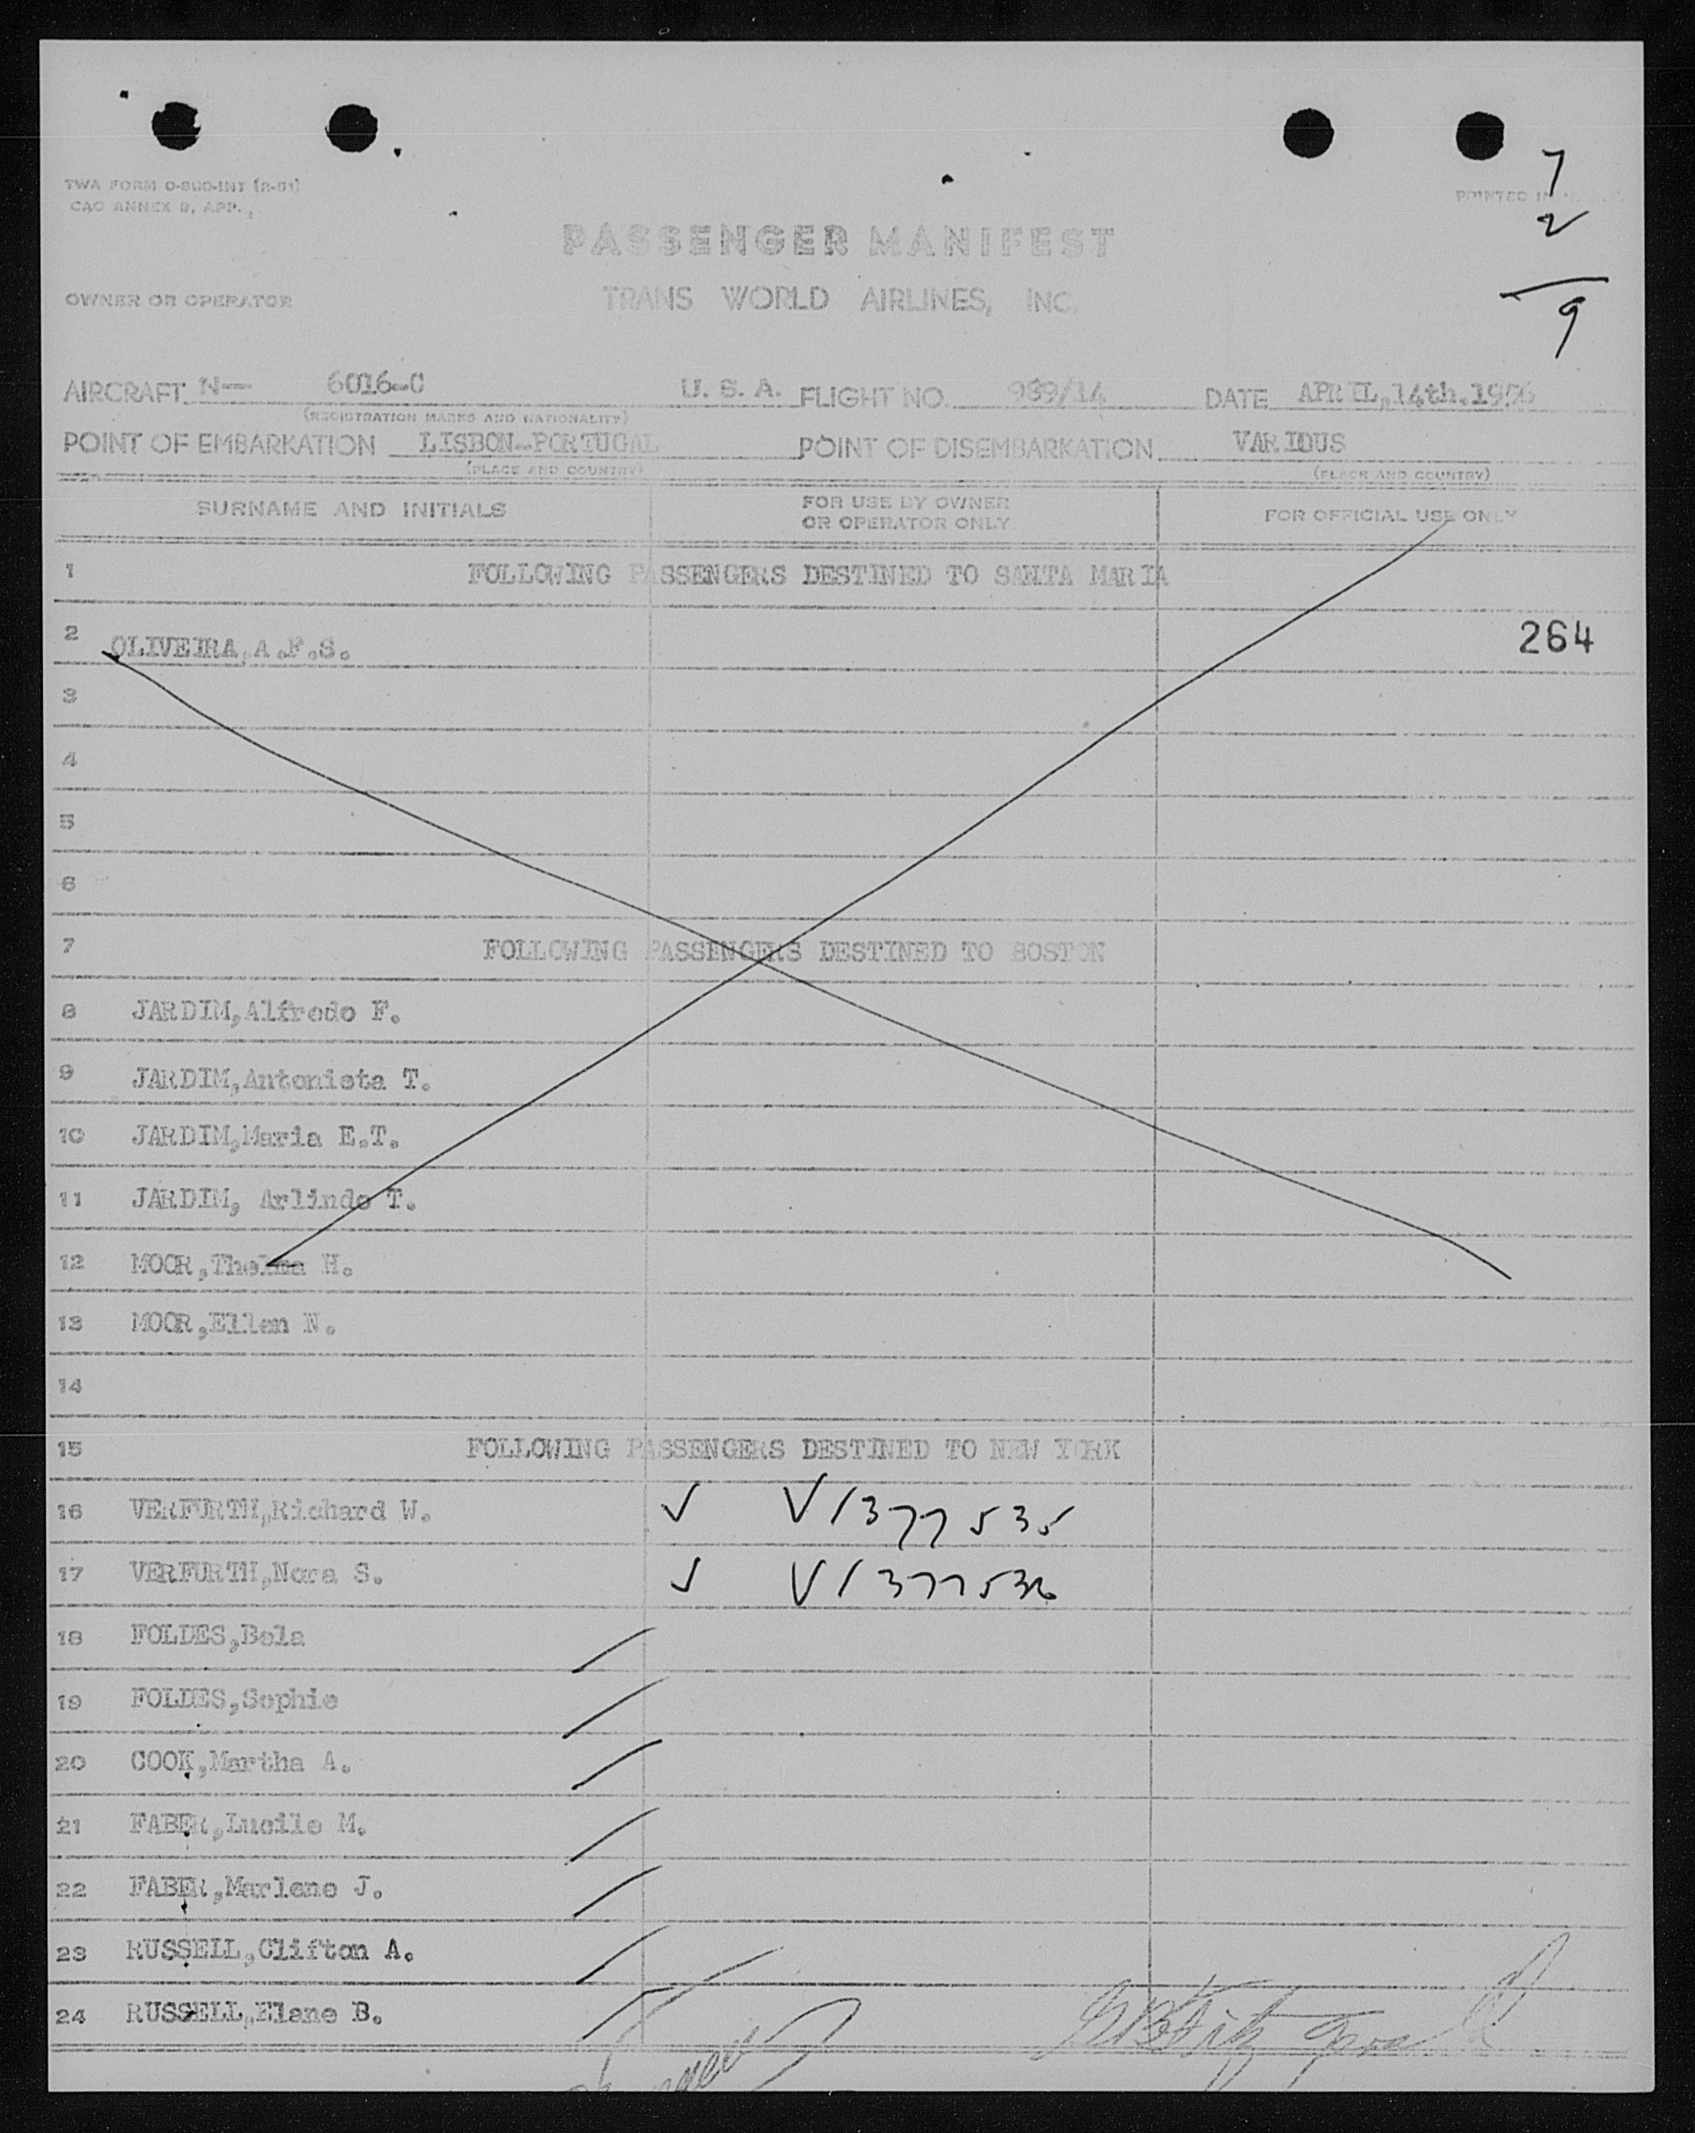 7
2
9
TWA FORM
PRINTED IN
PASSENGER MANIFEST
OWNER OR OPERATOR TRANS WORLD AIRLINES, INC.
AIRCRAFT N— 6016-C U. S. A. FLIGHT NO. 969/14 DATE APRIL,14th.1956
(REGISTRATION MARKS AND NATIONALITY)
POINT OF EMBARKATION LISBON-PORTUGAL POINT OF DISEMBARKATION VARIOUS
(PLACE AND COUNTRY) (PLACE AND COUNTRY)
SURNAME AND INITIALS FOR USE BY OWNER OR OPERATOR ONLY FOR OFFICIAL USE ONLY
1 FOLLOWING PASSENGERS DESTINED TO SANTA MARIA
2 OLIVEIRA,A.F.S. 264
3
4
5
6
7 FOLLOWING PASSENGERS DESTINED TO BOSTON
8 JARDIM,Alfredo F.
9 JARDIM,Antonieta T.
10 JARDIM,Maria E.T.
11 JARDIM, Arlindo T.
12 MOOR,Thelma H.
13 MOOR,Ellen N.
14
15 FOLLOWING PASSENGERS DESTINED TO NEW YORK
16 VERFURTH,Richard W. V1377535
17 VERFURTH,Nora S. V1377536
18 FOLDES,Bela
19 FOLDES,Sophie
20 COOK,Martha A.
21 FABER,Lucile M.
22 FABER,Marlene J.
23 RUSSELL,Clifton A.
24 RUSSELL,Elane B.